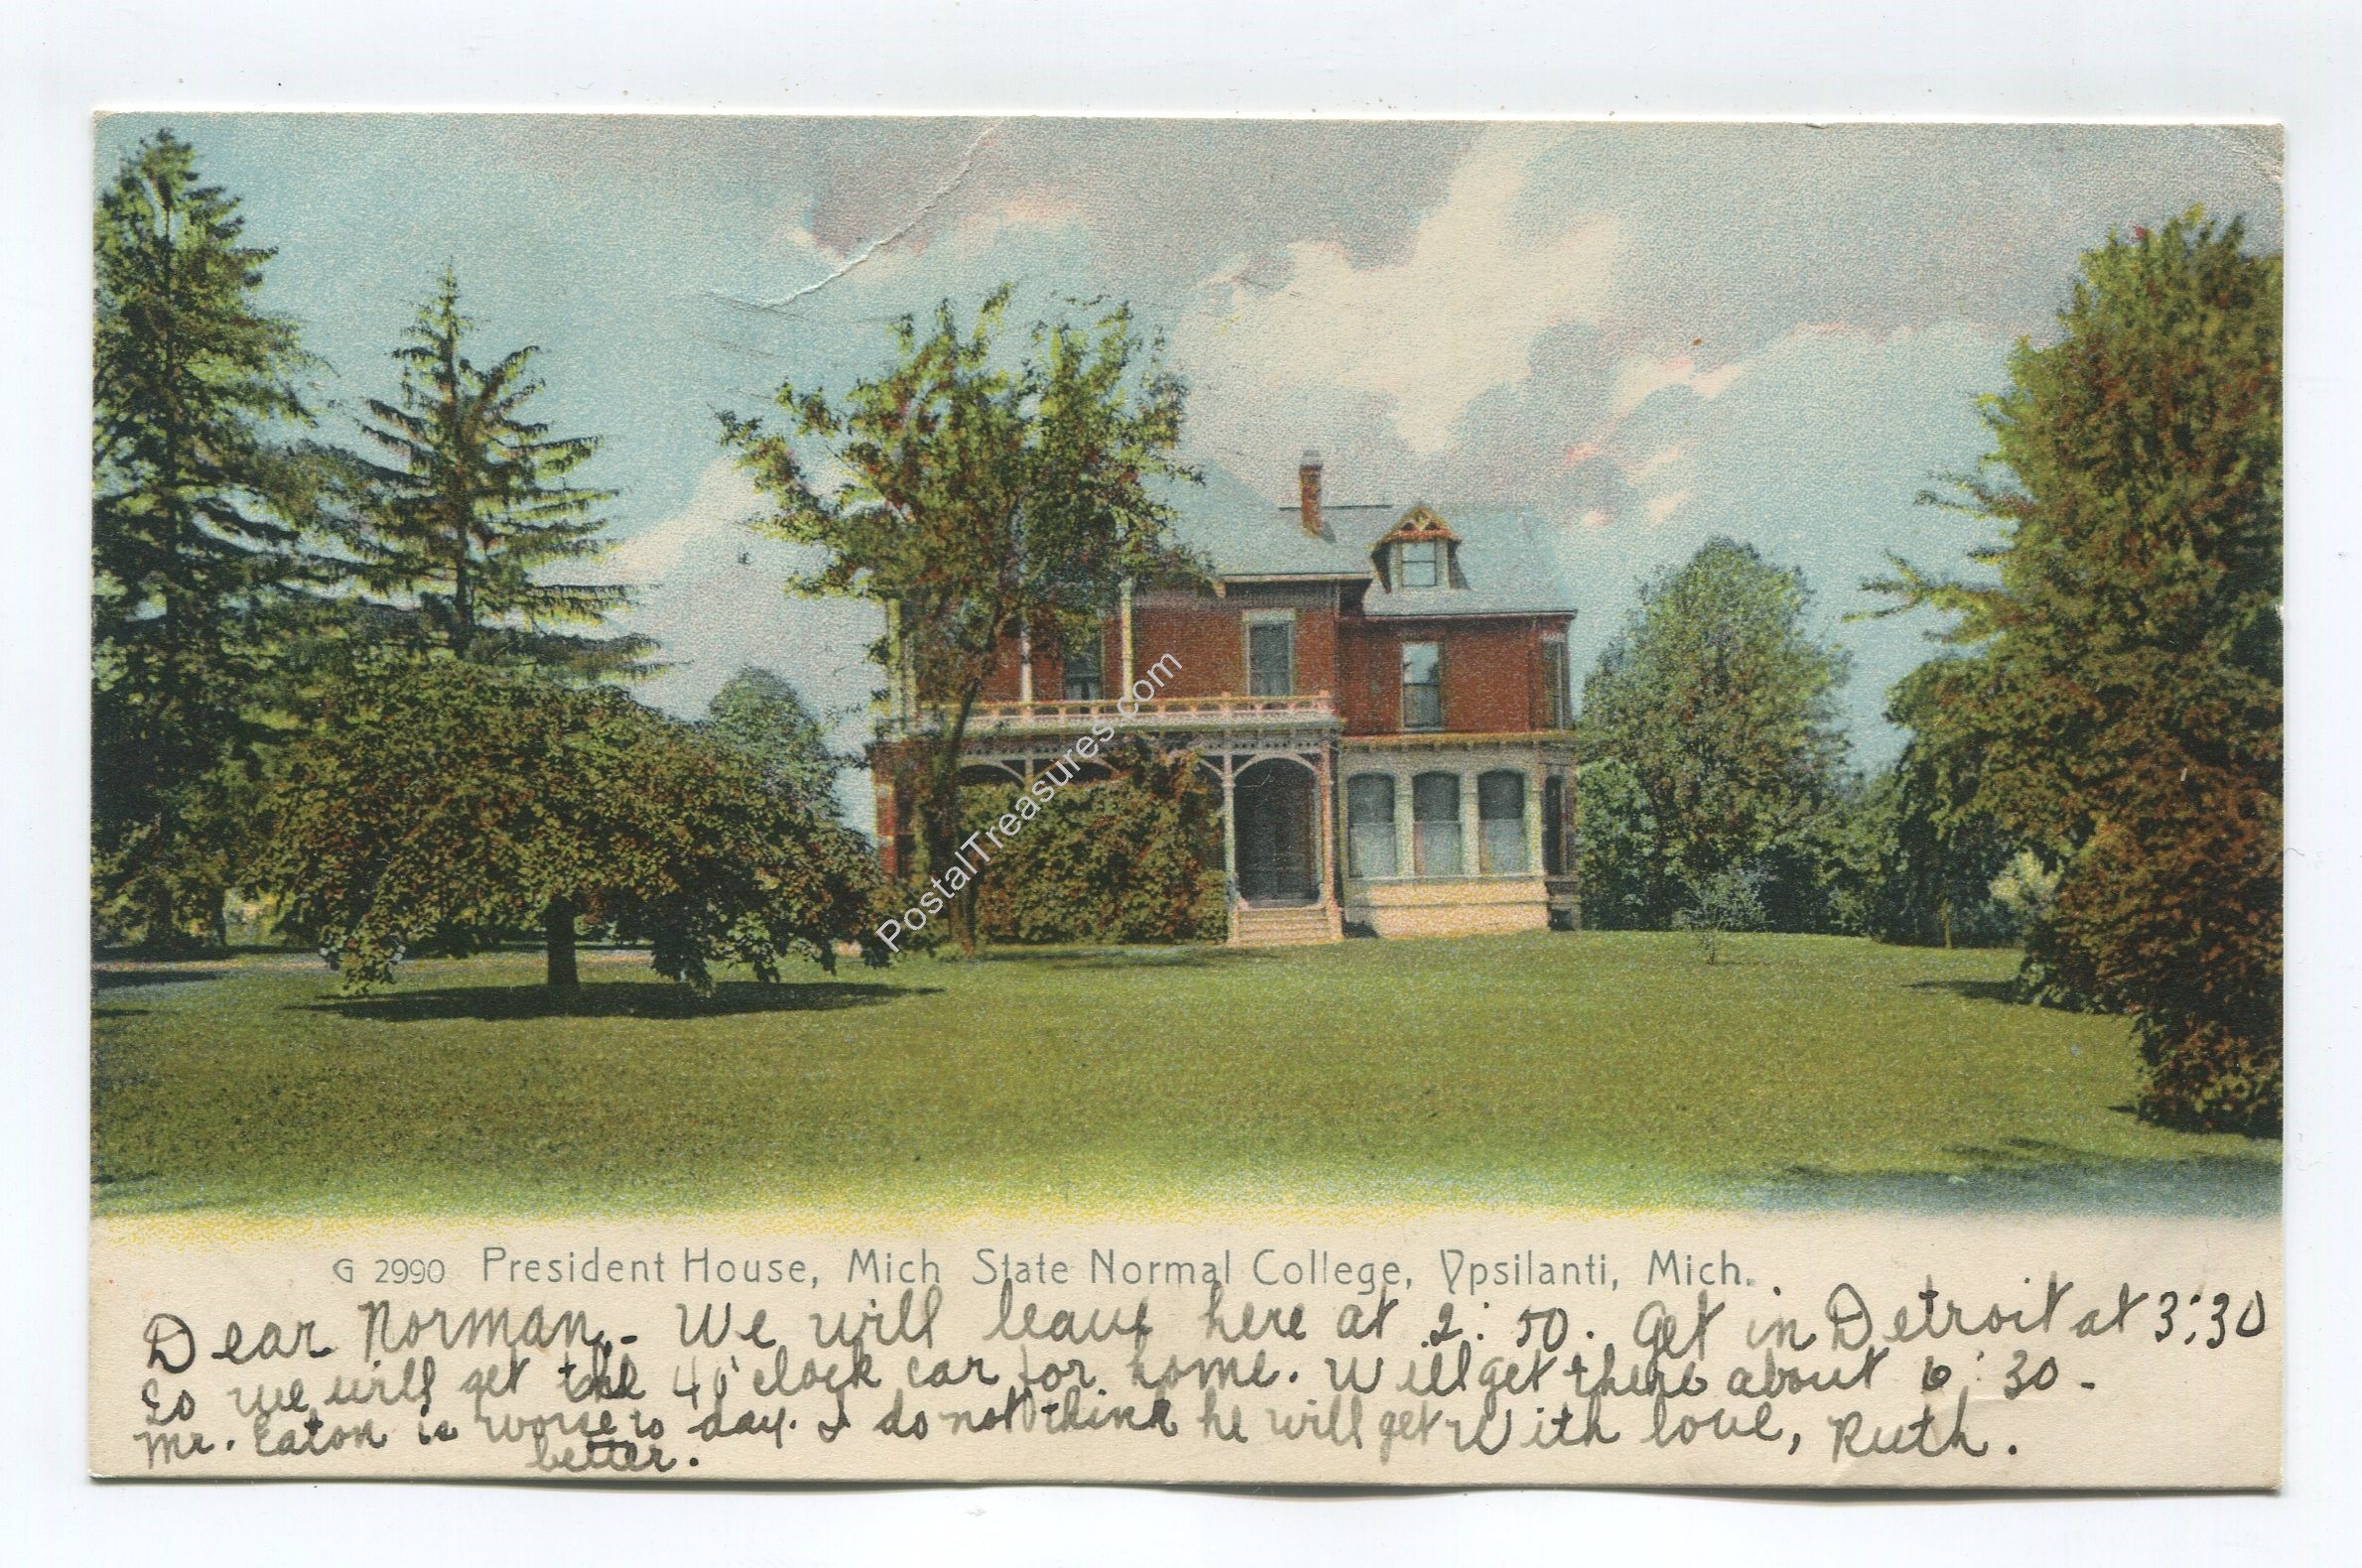 PostalTreasures.com
G 2990 President House, Mich State Normal College, Ypsilanti, Mich.
Dear Norman,- We will leave here at 2:50. Get in Detroit at 3:30
So we will get the 4 o'clock car for home. Will get there about 6:30-
Mr. Eaton is worse to day. I do not think he will get With love, Ruth.
better.